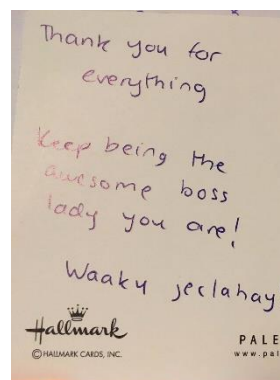 Thank you for
everything
Keep being the
awesome boss
lady you are!
Waaku jeclahay
Hallmark
© HALLMARK CARDS, INC.
PALE
www.pal